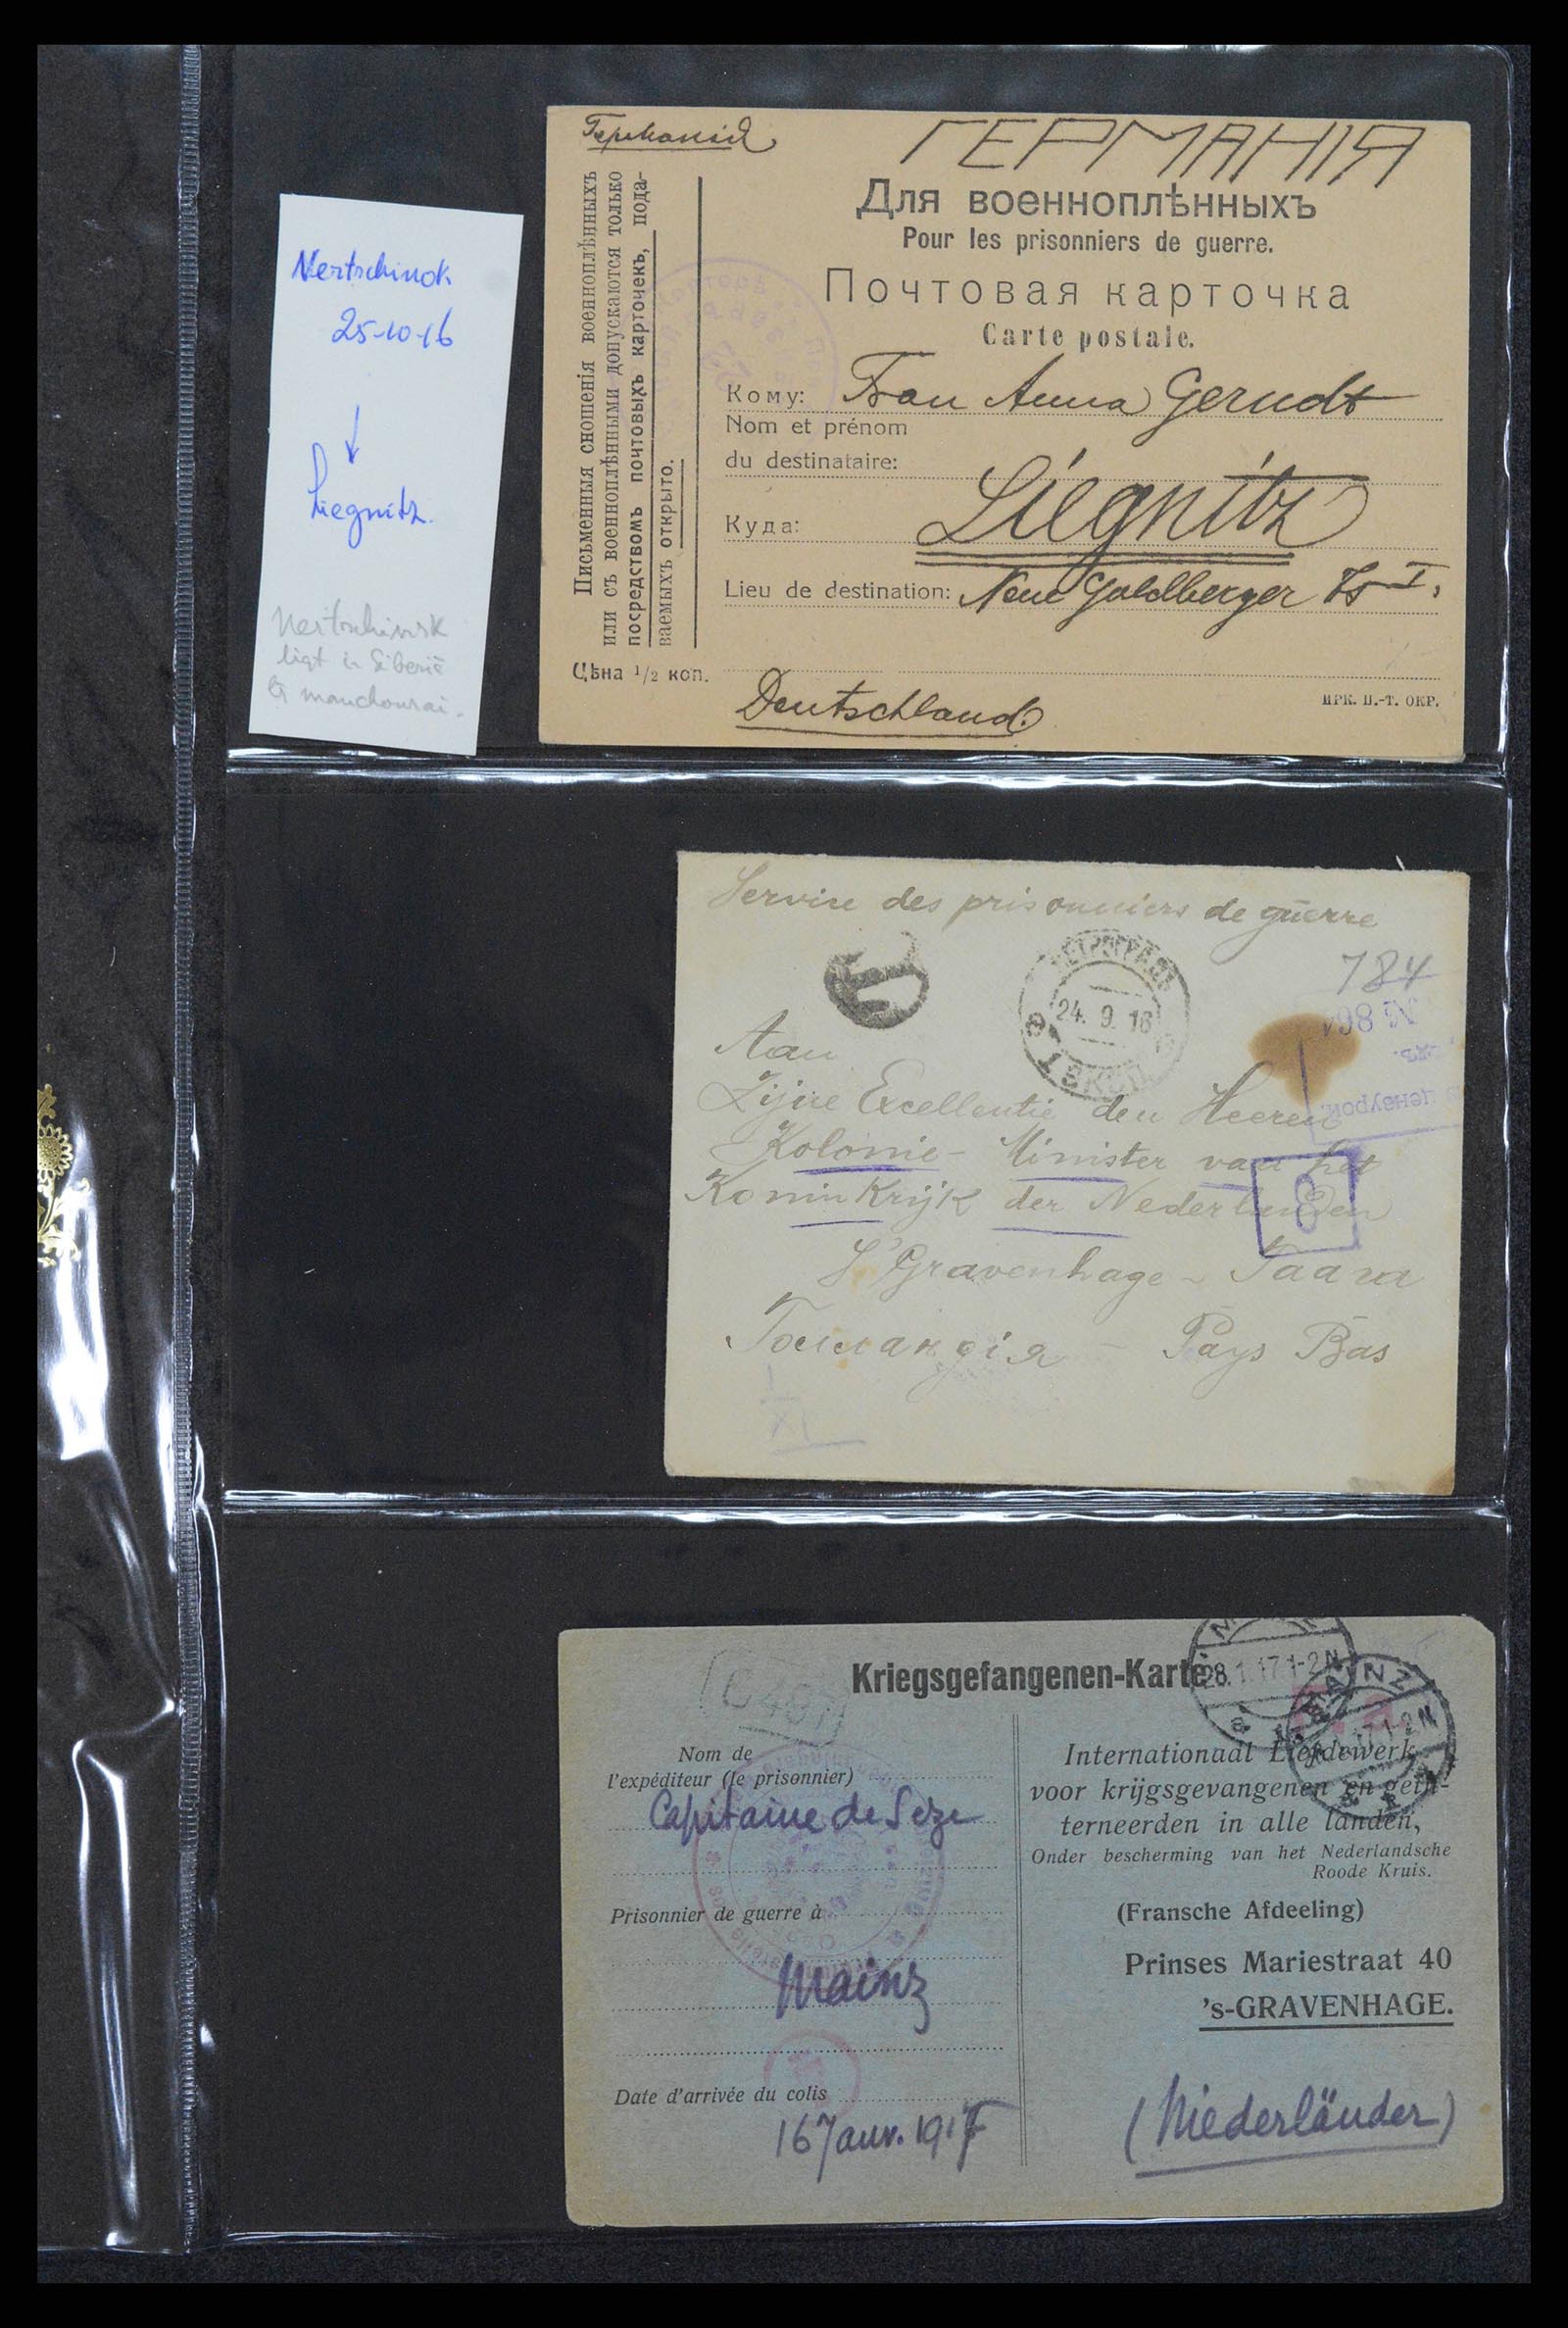 Nertschinok
25-10-16
Liegnitz.
Nertschinsk
ligt in Siberië
Германія
ГЕРМАНІЯ
Для военноплѣнныхъ
Pour les prisonniers de guerre.
Почтовая карточка
Carte postale.
Письменныя сношенія военноплѣнныхъ
или съ военноплѣнными допускаются только
посредствомъ почтовыхъ карточекъ, пода-
ваемыхъ открыто.
Цѣна 1/2 коп.
Кому: Frau Anna Gerndt
Nom et prénom
du destinataire:
Куда: Liegnitz
Lieu de destination: Neue Goldberger
Deutschland
ИРК. П.-Т. ОКР.
Servire des prisonniers de guerre
T
ПЕТРОГРАДЪ
24. 9. 16
784
Aan
Zijne Excellentie den Heeren
Kolonie- Minister van het
Koninkrijk der Nederlanden
S'Gravenhage - Гаага
Голландія - Pays Bas
Kriegsgefangenen-Karte
28.1.17.1-2N
MAINZ
Nom de
l'expéditeur (le prisonnier)
Capitaine de Seze
Prisonnier de guerre à
Mainz
Date d'arrivée du colis
16 Janv. 1917
Internationaal Liefdewerk
voor krijgsgevangenen en geïn-
terneerden in alle landen,
Onder bescherming van het Nederlandsche
Roode Kruis.
(Fransche Afdeeling)
Prinses Mariestraat 40
's-GRAVENHAGE.
(Niederländer)